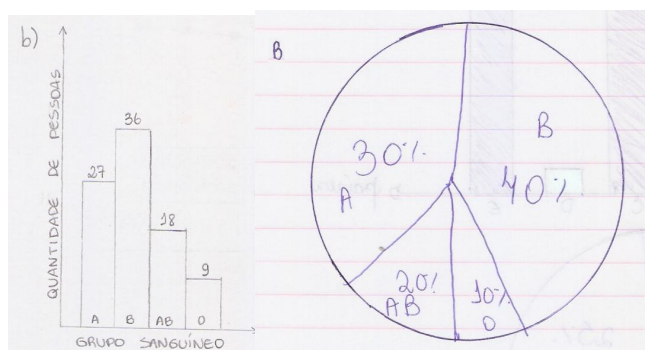 b)
QUANTIDADE DE PESSOAS
36
27
18
9
A B AB O
GRUPO SANGUÍNEO
B
B
30%
40%
A
20%
AB
10%
O